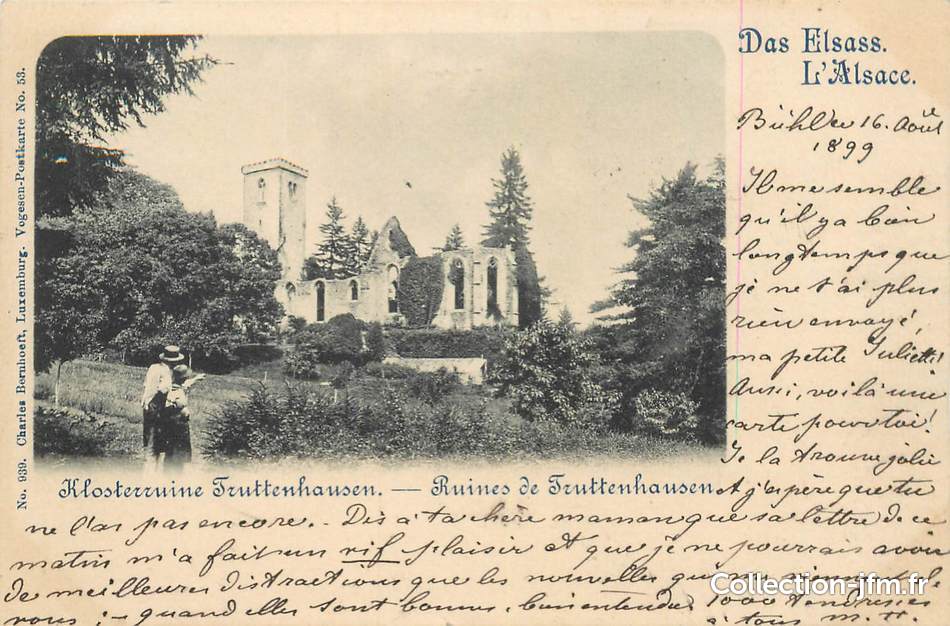 Das Elsass.
L'Alsace.
16. Août
1899
Il me semble
qu'il y a bien
longtemps que
je ne t'ai plus
rien envoyé,
ma petite Juliette!
Aussi, voilà une
carte pour toi!
Je la trouve jolie
et j'espère que tu
ne l'as pas encore. - Dis à ta chère maman que sa lettre de ce
matin m'a fait un vif plaisir et que je ne pourrais avoir
de meilleures distractions que les nouvelles qui
vous ; - quand elles sont bonnes, bien entendu! 1000 tendresses
à tous M. H.
Klosterruine Truttenhausen. — Ruines de Truttenhausen
No. 939. Charles Bernhoeft, Luxemburg. Vogesen-Postkarte No. 53.
Collection-jfm.fr